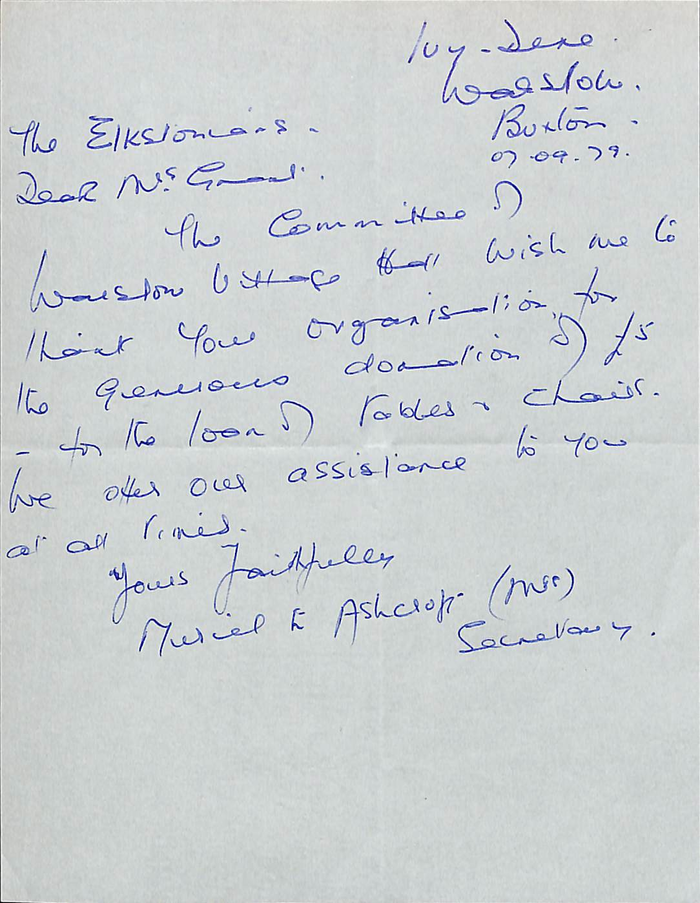 Ivy-Dene.
Warslow.
Buxton.
07.09.79.
The Elkstonians.
Dear Mrs Grant.
The Committee of
Warslow Village Hall wish me to
thank your organisation, for
the generous donation of £5
- for the loan of tables & chairs.
We offer our assistance to you
at all times.
Yours Faithfully
Muriel E Ashcroft (Mrs)
Secretary.